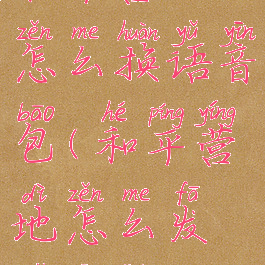 zěn me huàn yǔ yīn
怎么换语音
bāo hé píng yíng
包(和平营
dì zěn me fā
地怎么发